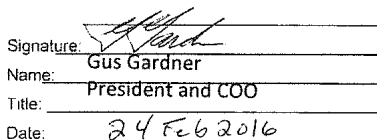 Signature:
Name: Gus Gardner
Title: President and COO
Date: 24 Feb 2016